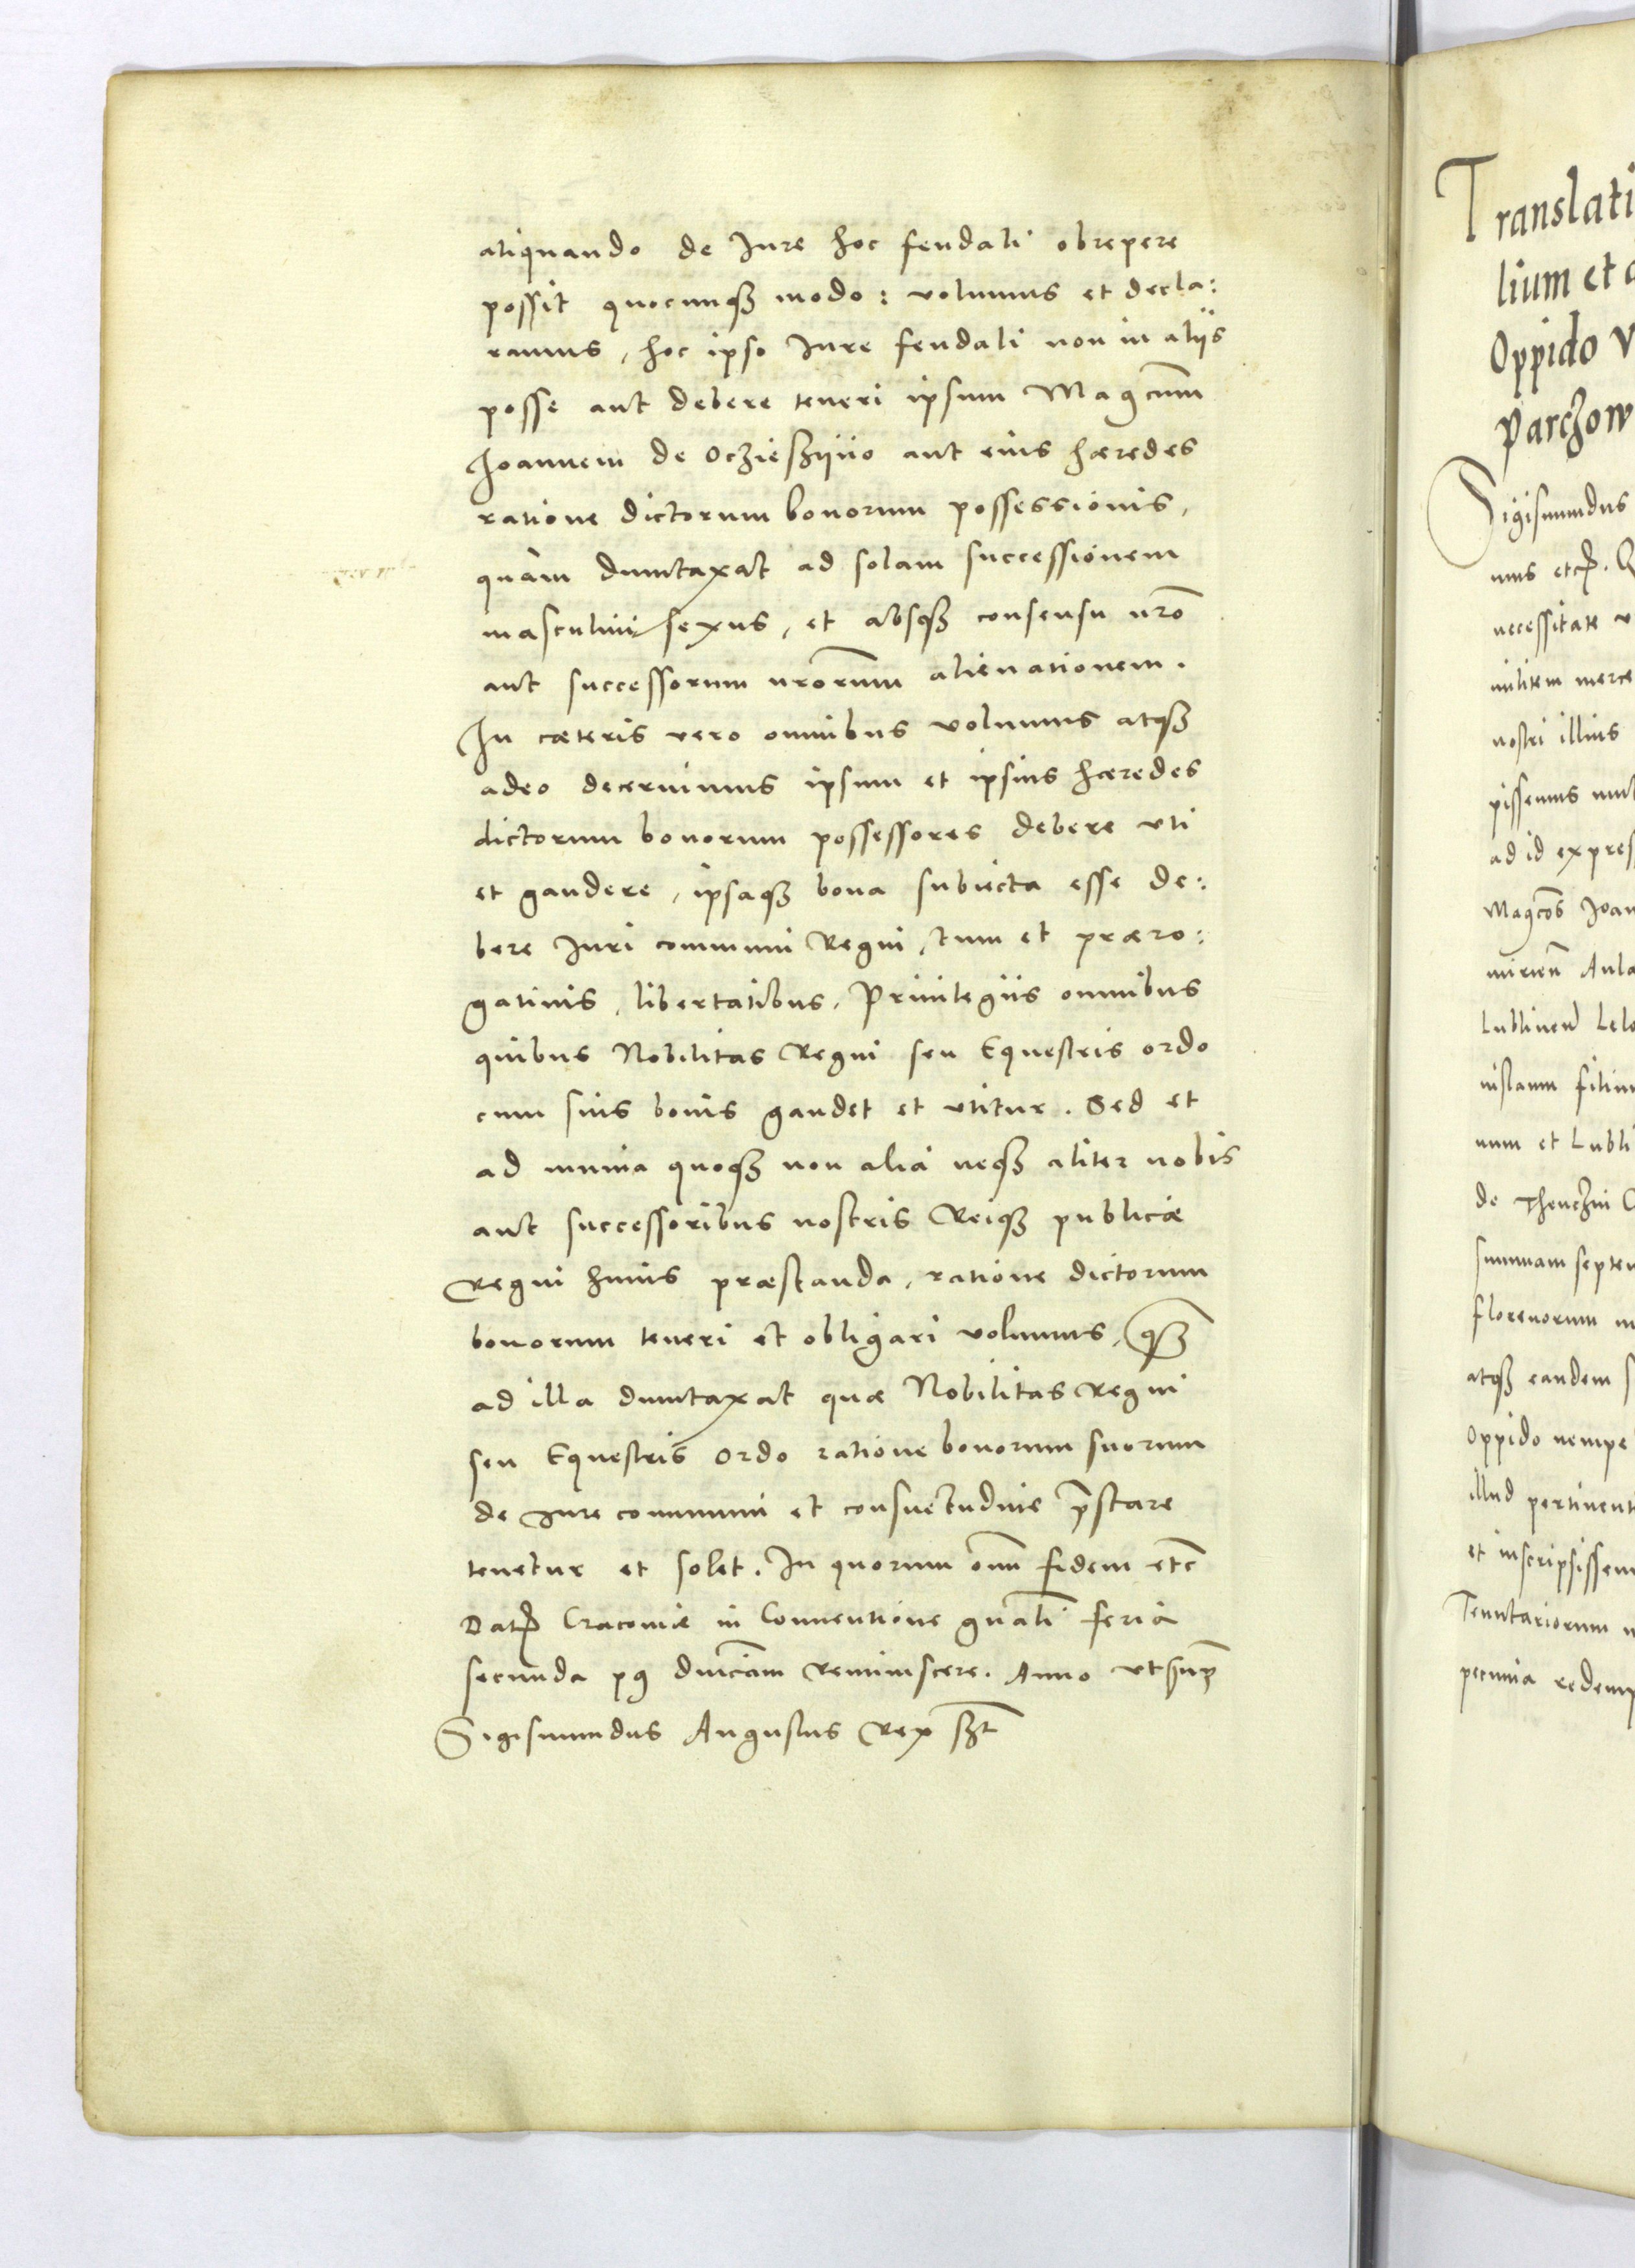 aliquando de Iure hoc feudali obrepere
possit quocunqꝫ modo: volumus et decla:
ramus, hoc ipso Iure feudali non in aliis
posse aut debere teneri ipsum Magcum
Ioannem de Oczieszyno aut eius hæredes
ratione dictorum bonorum possessionis,
quam dumtaxat ad solam successionem
masculini sexus, et absqꝫ consensu nro
aut successorum nrorum alienationem.
In cæteris vero omnibus volumus atqꝫ
adeo decernimus ipsum et ipsius hæredes
dictorum bonorum possessores debere uti
et gaudere, ipsaqꝫ bona subiecta esse de:
bere Iuri communi Regni, tum et præro:
gatiuis, libertatibus, Priuilegiis omnibus
quibus Nobilitas Regni seu Equestris ordo
cum suis bonis gaudet et utitur. Sed et
ad munia quoqꝫ non alia neqꝫ aliter nobis
aut successoribus nostris Reiqꝫ publicæ
Regni huius præstanda, ratione dictorum
bonorum teneri et obligari volumus, qꝫ
ad illa dumtaxat quæ Nobilitas Regni
seu Equestris Ordo ratione bonorum suorum
de iure communi et consuetudine pstare
tenetur et solet. In quorum om fidem etc
Dat Cracouiæ in Conuentione gnali feria
secunda pꝰ dnicam Reminiscere. Anno ut sup
Sigismundus Augustus Rex sst
Translati
lium et
Oppido
Parczow
Sigismundus
mus etc.
necessitate
militem merce
nostri illius
pissemus
ad id expres
Magcos Ioan
Aula
Lublinen
nislaum filiu
num et Lubli
de Thenczin
summam septe
florenorum
atqꝫ eandem
Oppido nempe
illud pertinent
et inscripsissem
Tenutariorum
pecunia redemp